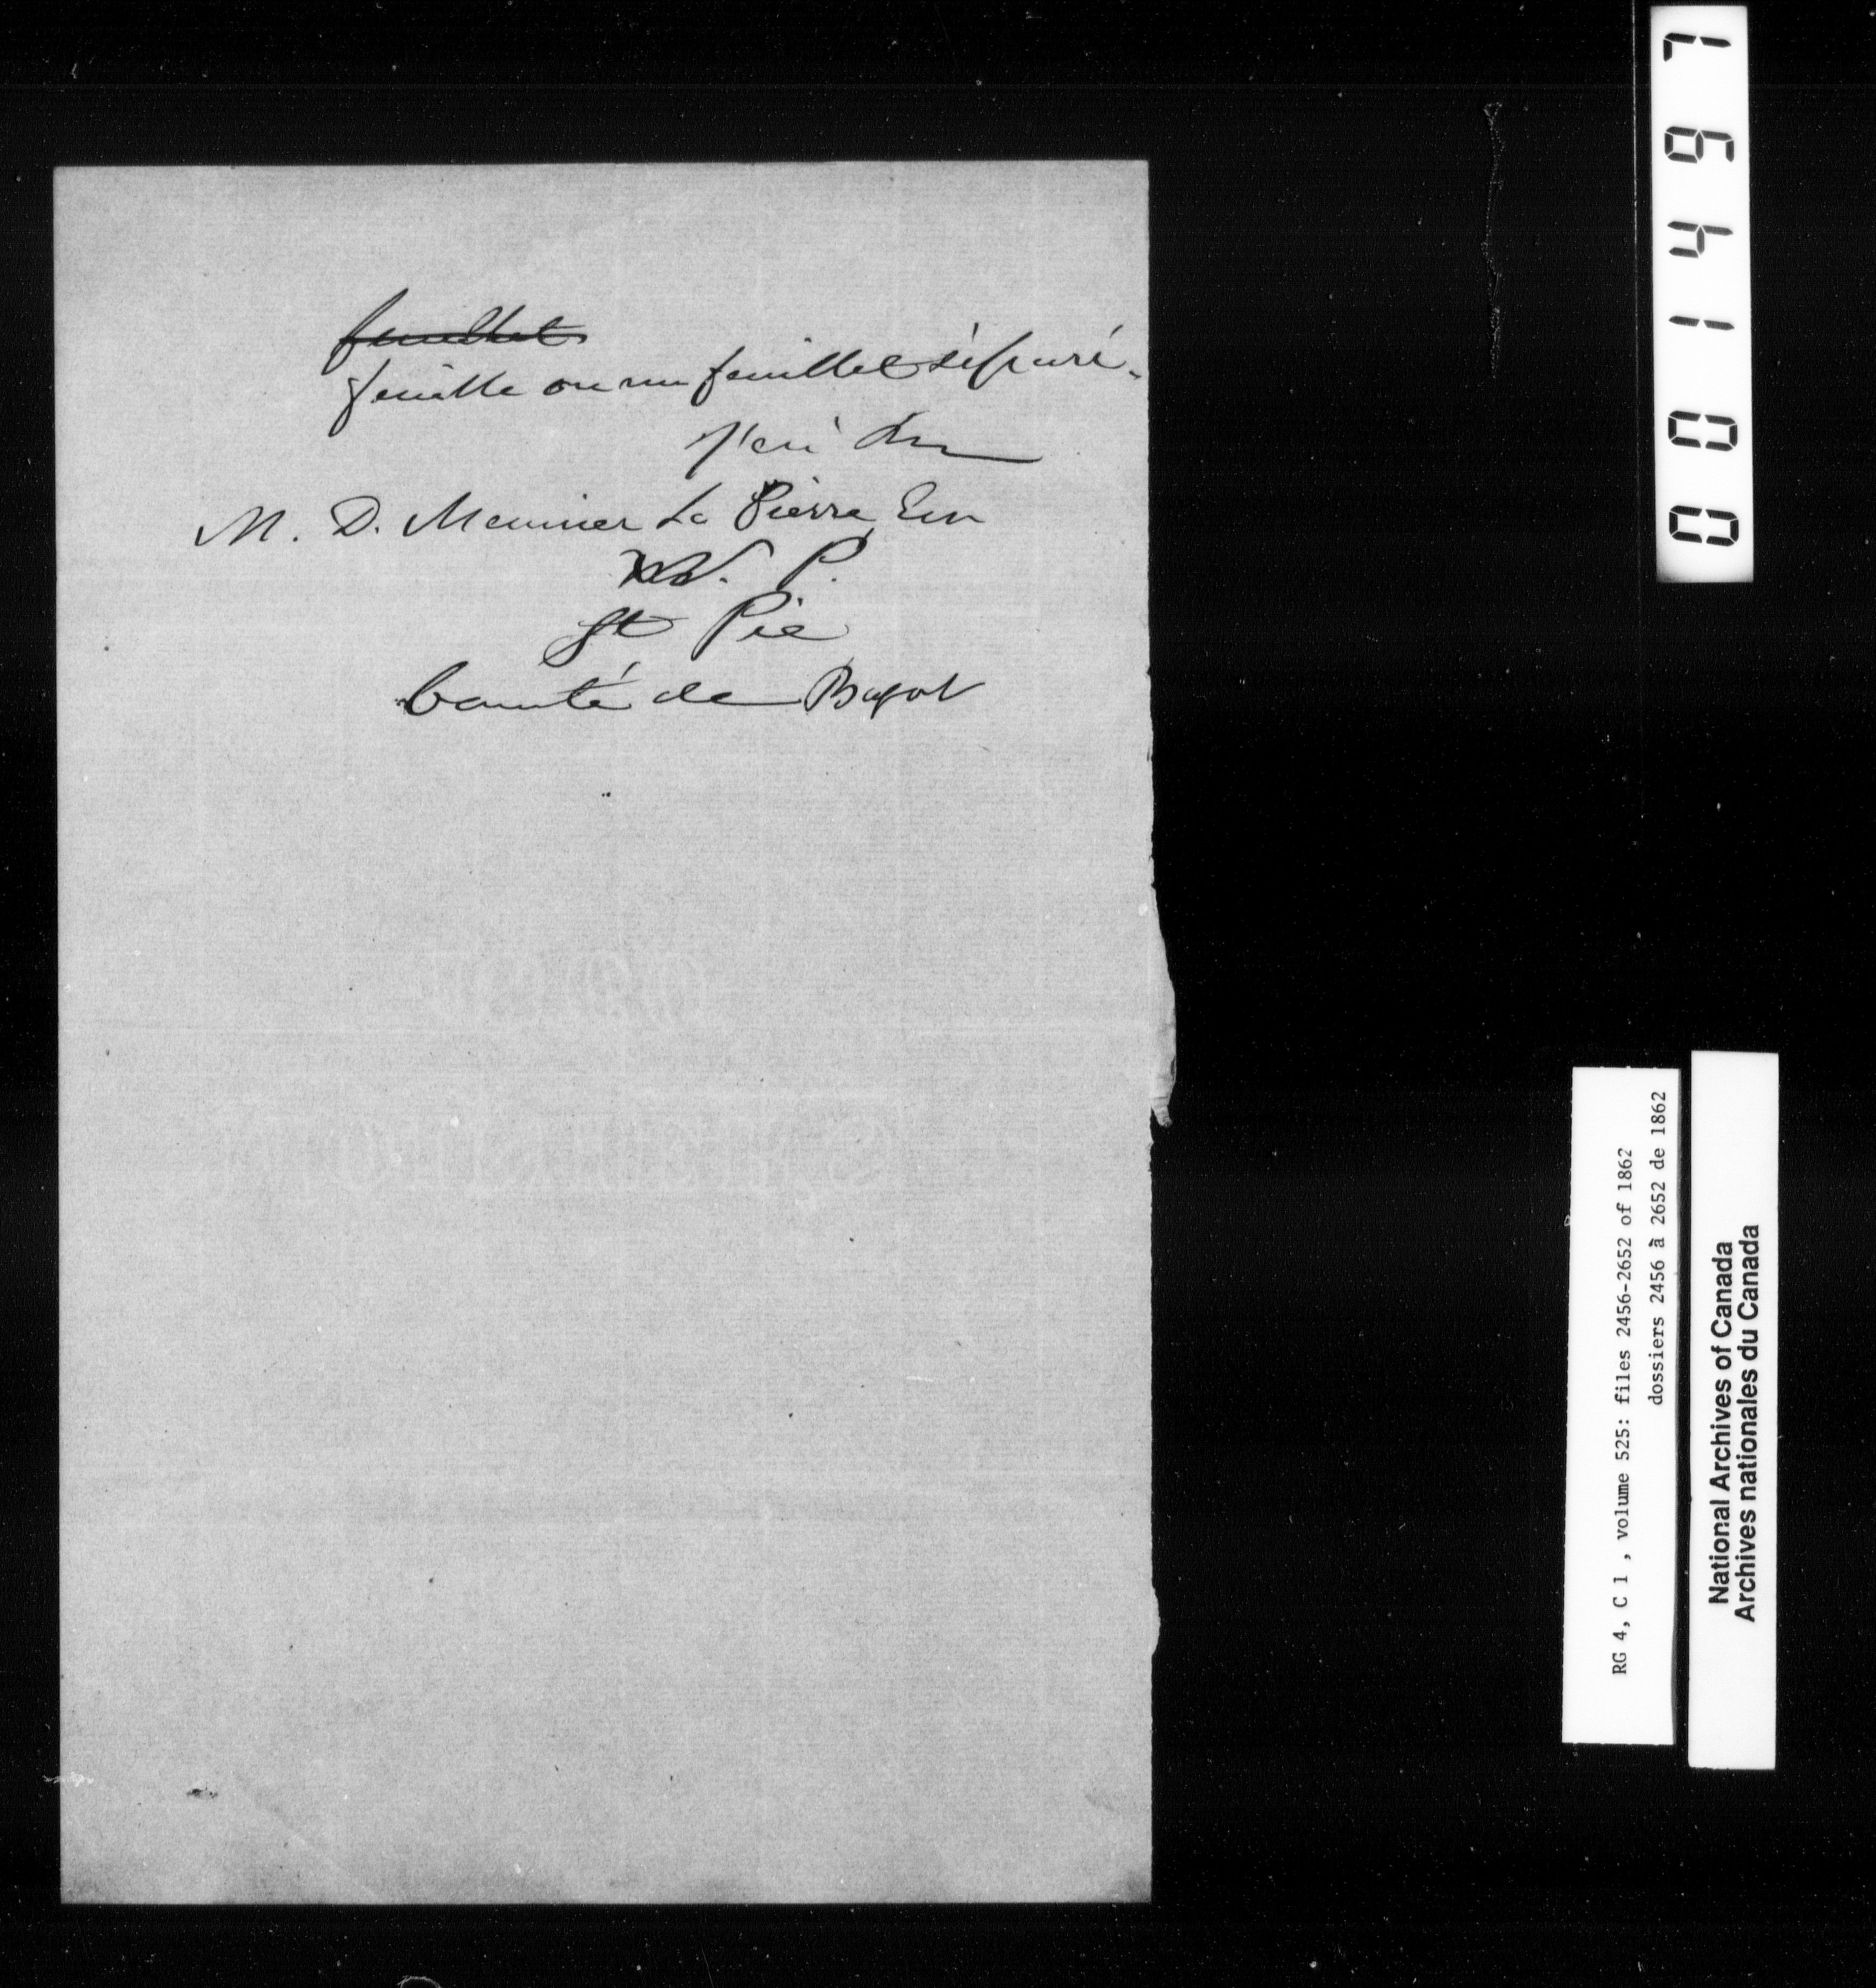 feuillet
feuille ou un feuillet séparé.
J'ai
M. D. Meunier La Pierre Eur
N. P.
St Pie
Comté de Bagot
001497
RG 4, C 1 , volume 525: files 2456-2652 of 1862
dossiers 2456 à 2652 de 1862
National Archives of Canada
Archives nationales du Canada